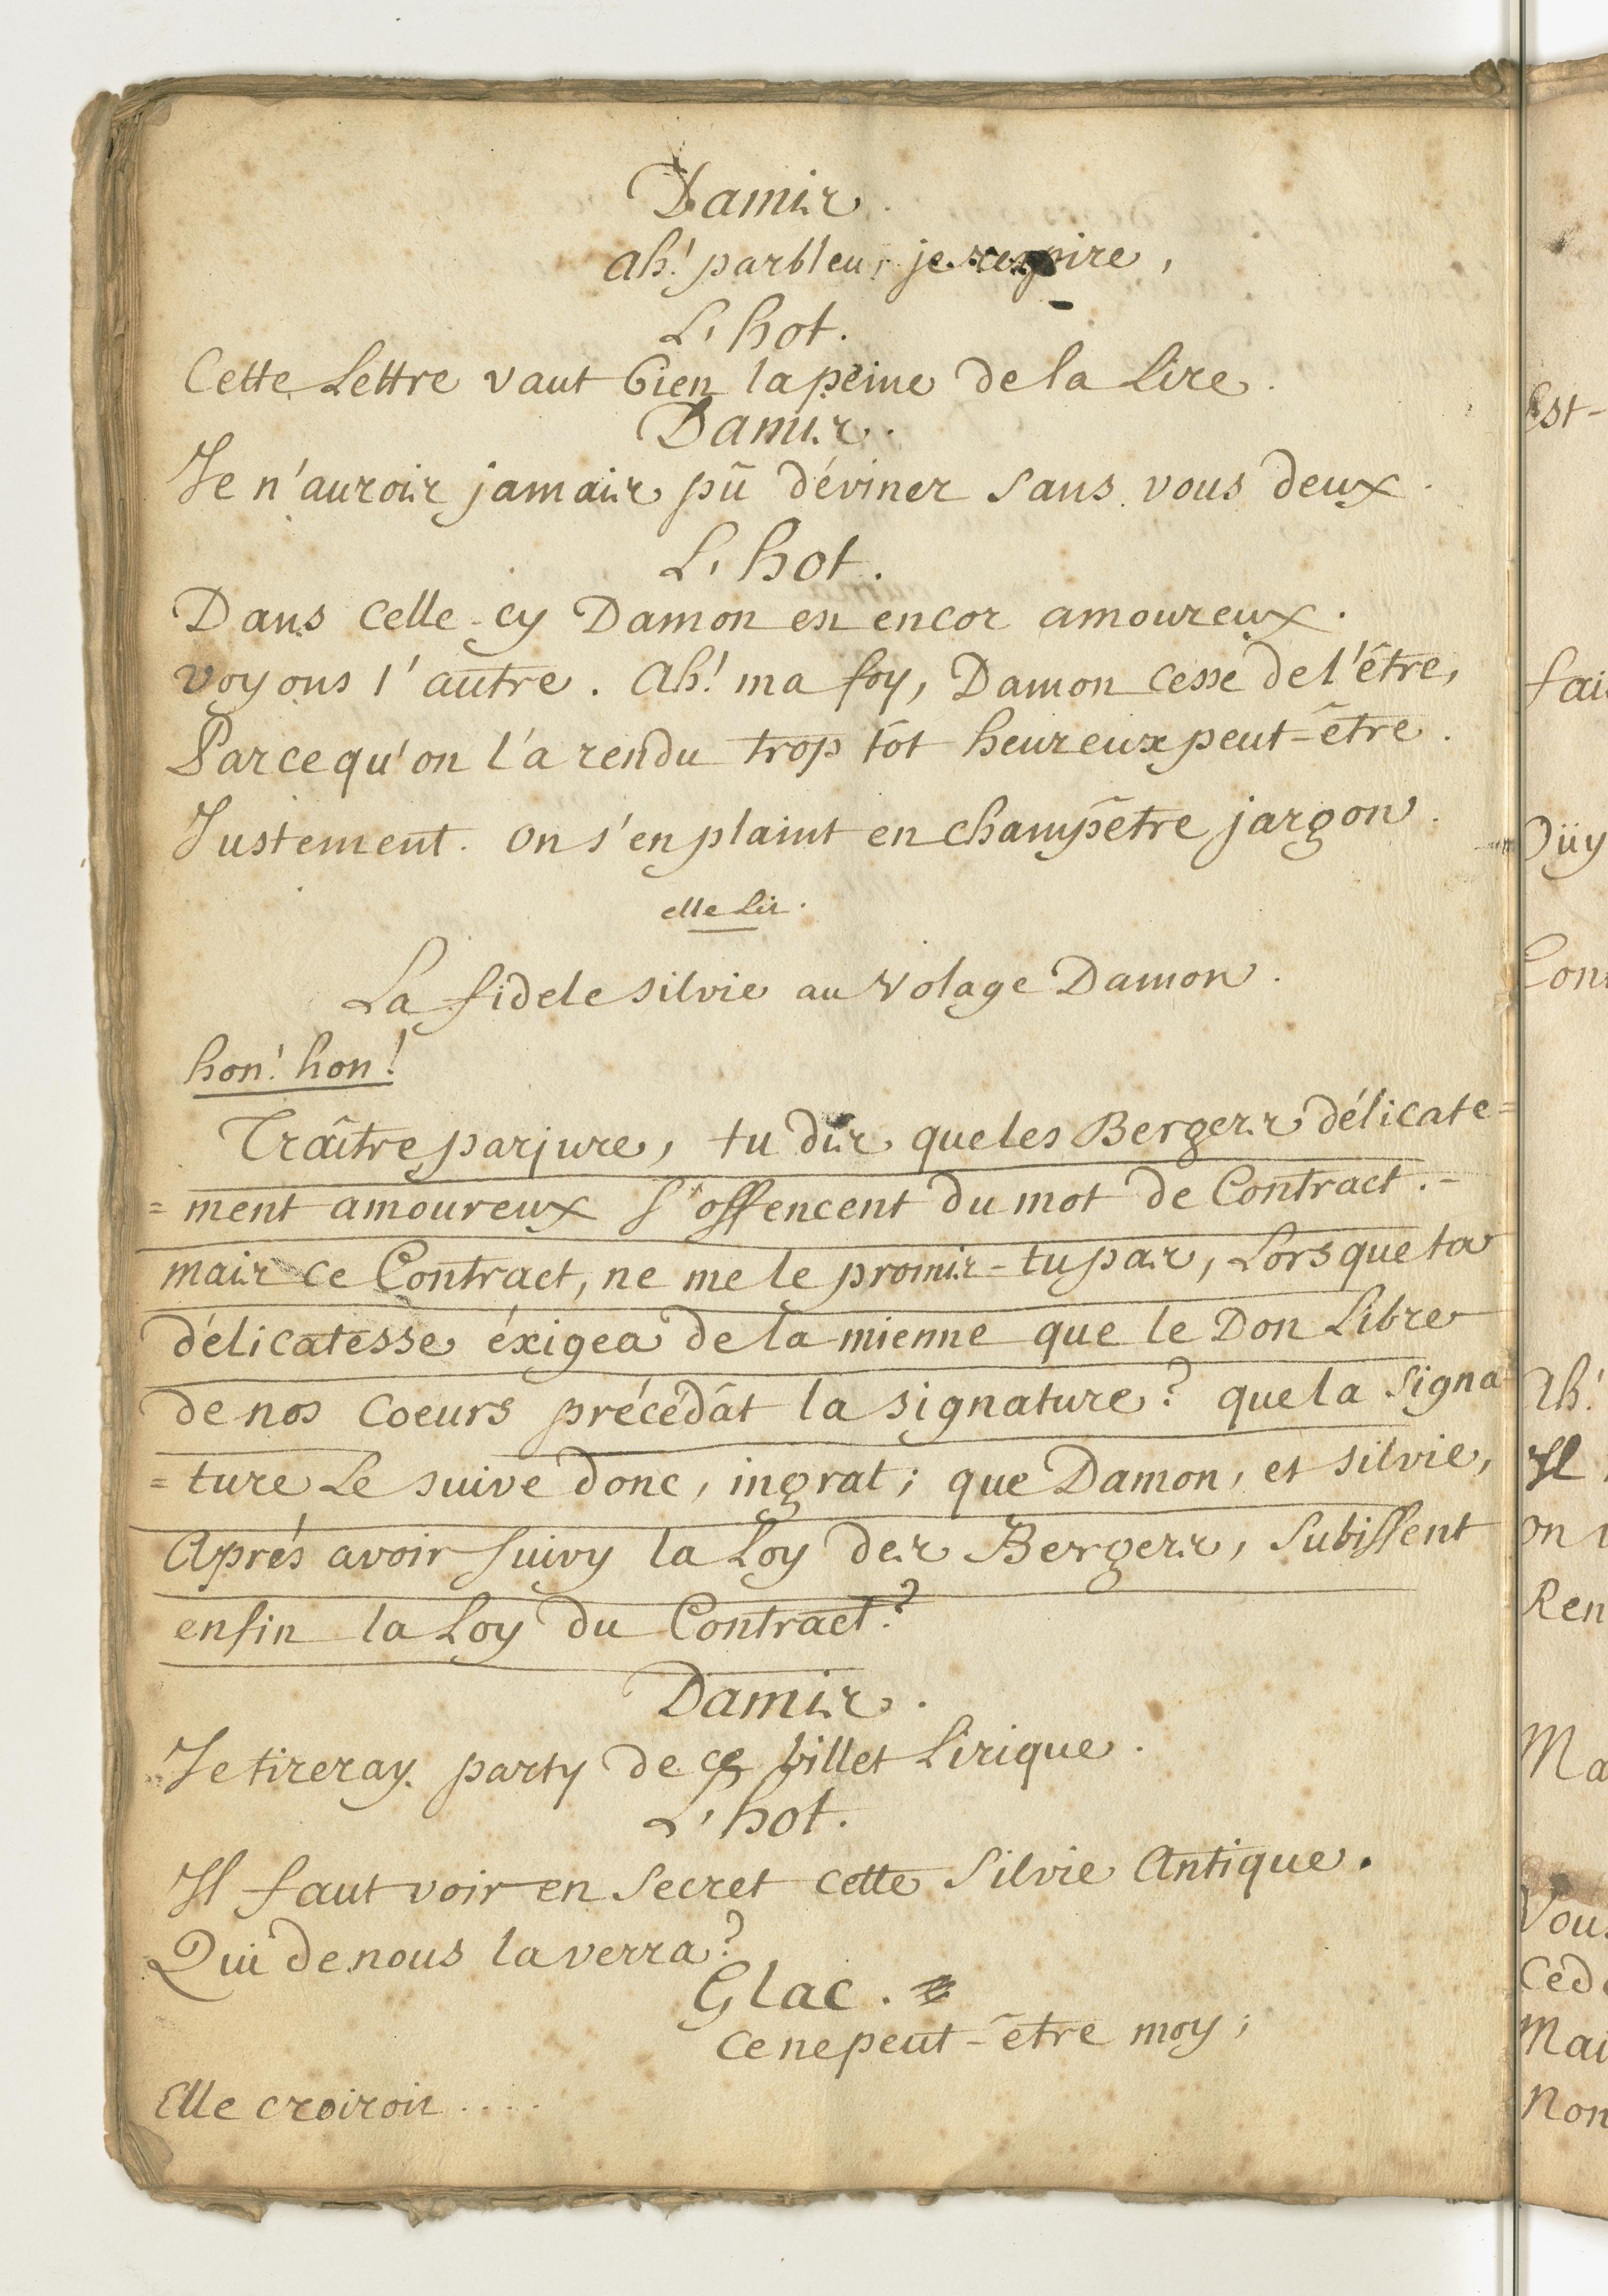 Damis.
Ah! parbleu, je respire,
L'hot.
Cette Lettre vaut bien la peine de la Lire.
Damis.
Je n'aurois jamais pû déviner sans vous deux.
L'hot.
Dans celle-cy Damon est encor amoureux.
voyons l'autre. Ah! ma foy, Damon cesse de l'être,
Parcequ'on l'a rendu trop tôt heureux peut-être.
Justement. On s'en plaint en champêtre jargon.
elle Lit.
La fidele silvie au Volage Damon.
hon! hon!
Traître parjure, tu dis que les Bergers délicate=
=ment amoureux s'offencent du mot de Contract.-
mais ce Contract, ne me le promis-tu pas, Lorsque ta
délicatesse éxigea de la mienne que le Don Libre
de nos coeurs précédât la signature? que la signa
=ture Le suive donc, ingrat; que Damon, et silvie,
Aprés avoir suivy la Loy des Bergers, subissent
enfin la Loy du Contract?
Damis.
Je tireray party de ce billet Lirique.
L'hot.
Il faut voir en secret cette Silvie Antique.
Qui de nous la verra?
Glac.
ce ne peut-être moy;
Elle croiroit ....